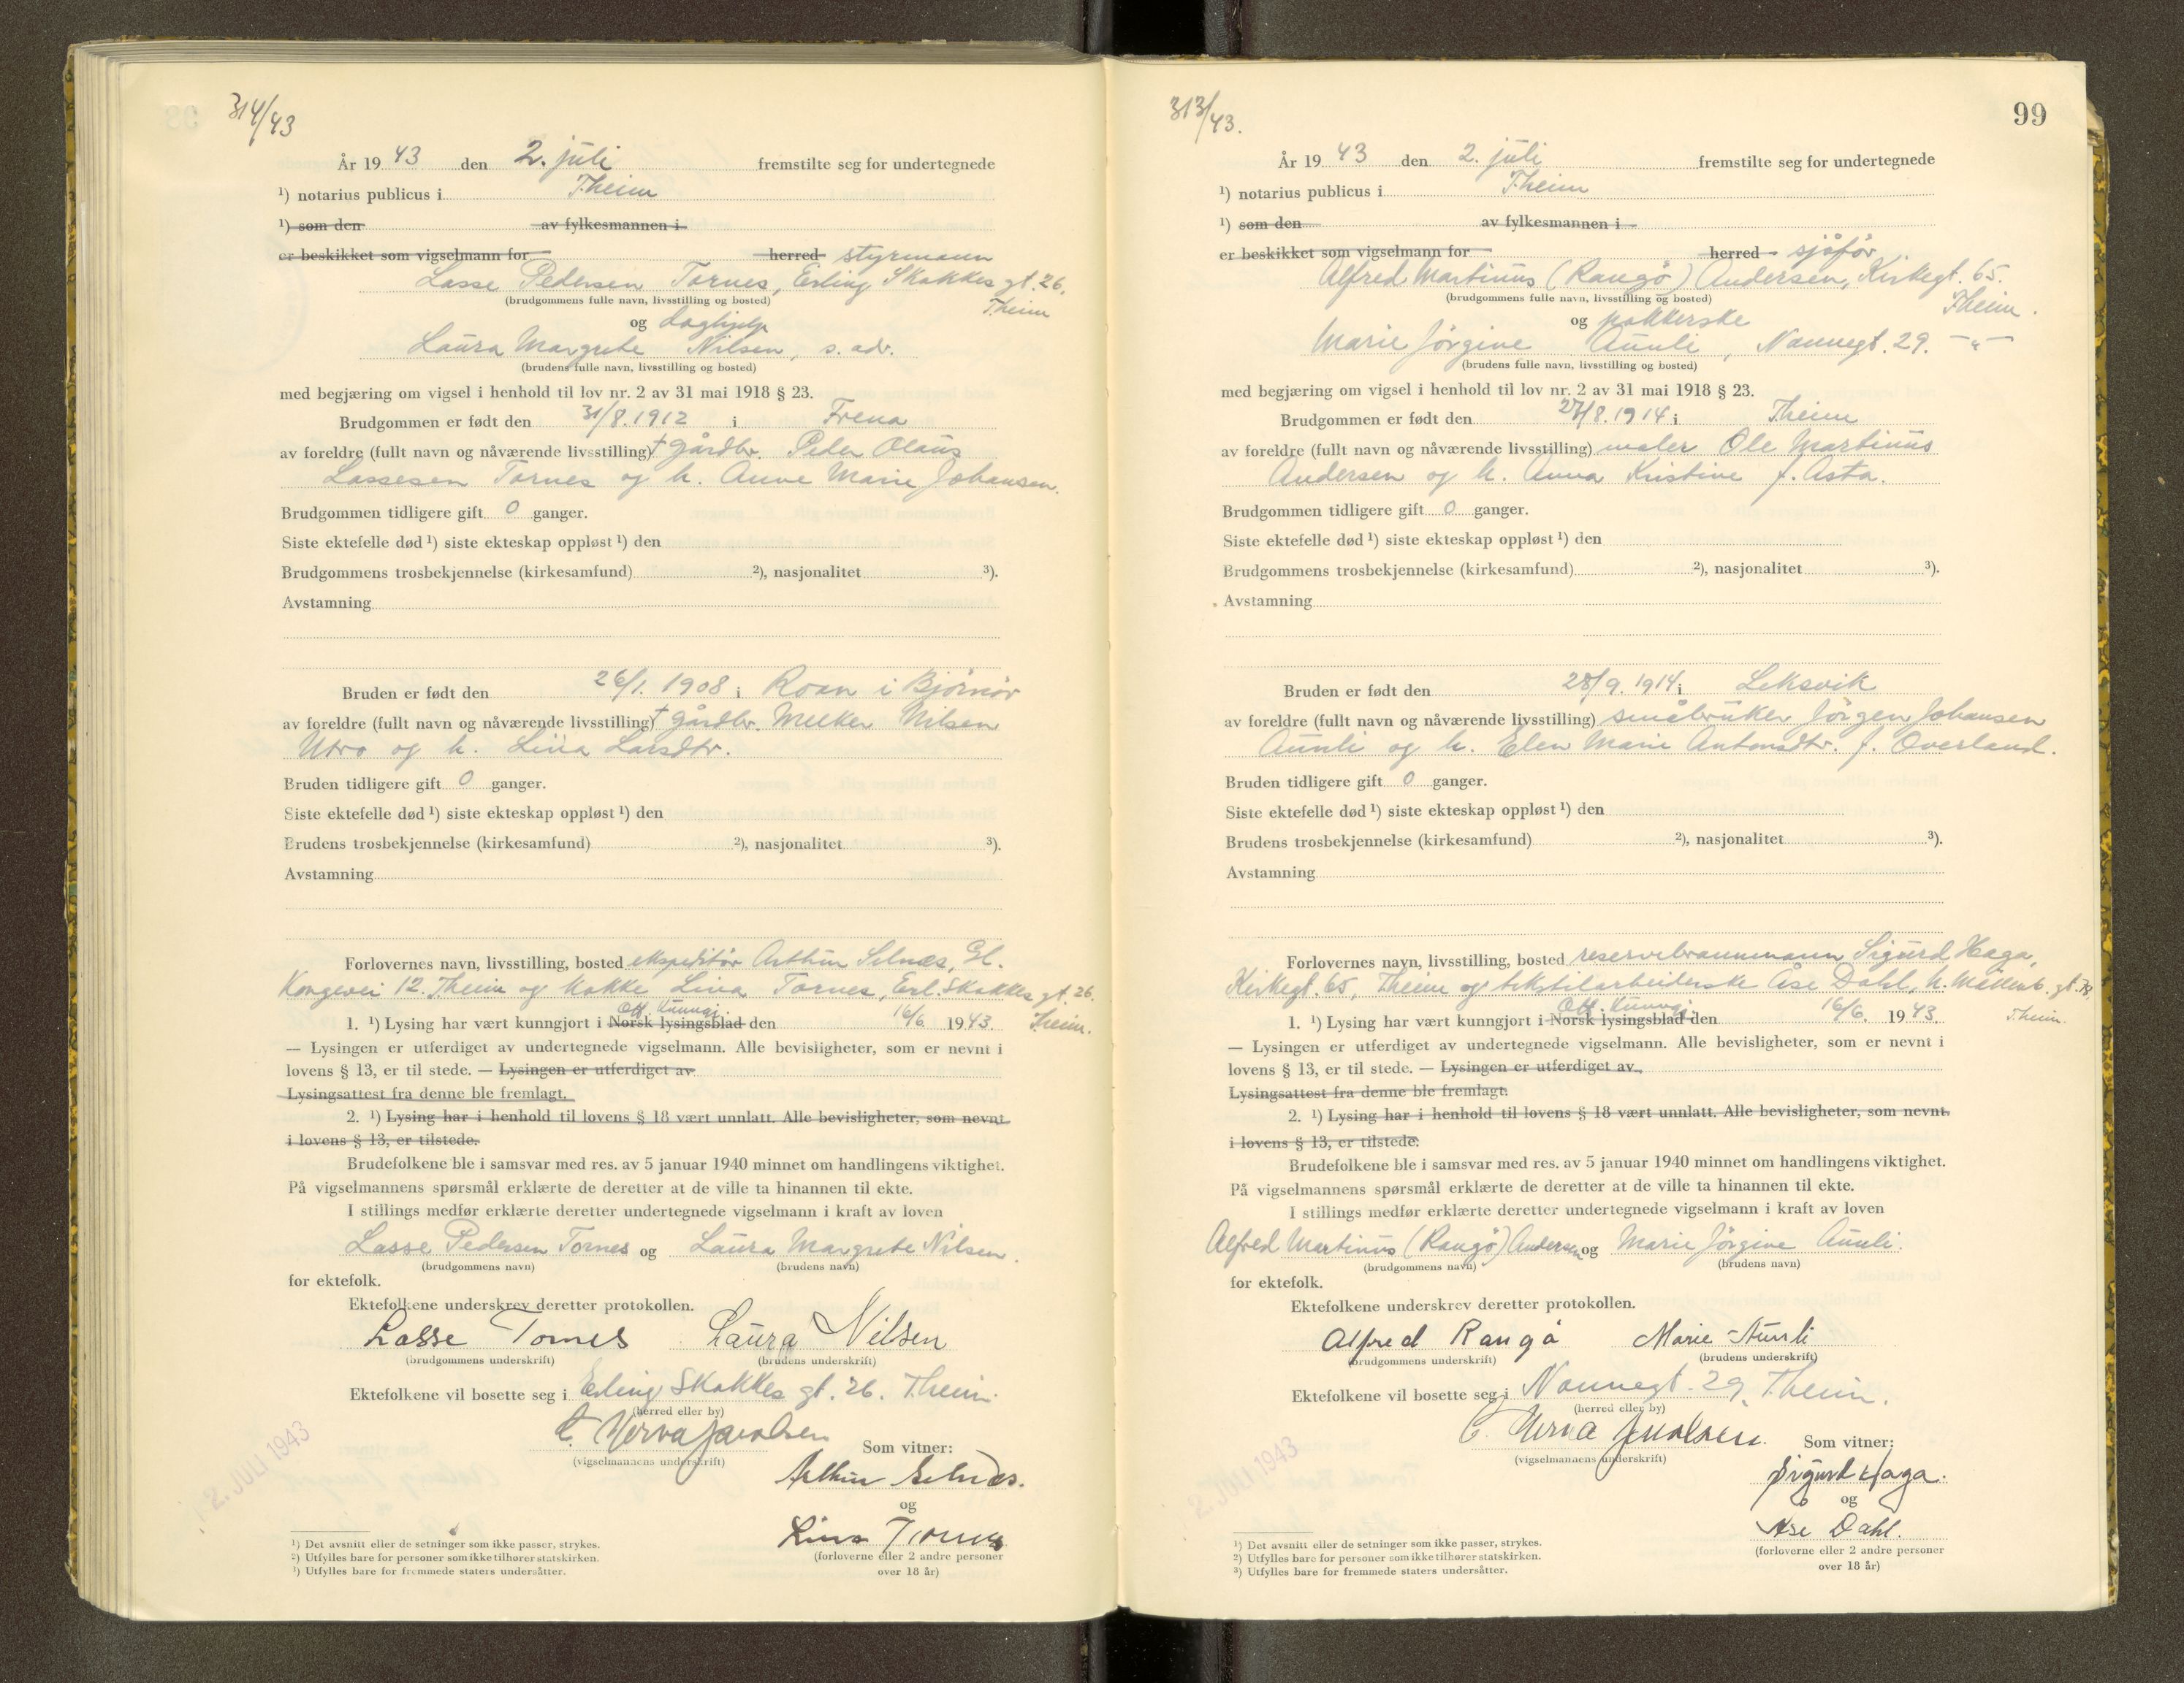 314/43
År 19 43 den 2. juli fremstilte seg for undertegnede
¹) notarius publicus i T.heim
¹) som den av fylkesmannen i
er beskikket som vigselmann for herred styrmann
Lasse Pedersen Tornes, Erling Skakkes gt. 26,
(brudgommens fulle navn, livsstilling og bosted)
T.heim
og daghjelp
Laura Margrete Nilsen, s. adr.
(brudens fulle navn, livsstilling og bosted)
med begjæring om vigsel i henhold til lov nr. 2 av 31 mai 1918 § 23.
Brudgommen er født den 31/8. 1912 i Frena
av foreldre (fullt navn og nåværende livsstilling) † gårdbr. Peder Olaus
Lassesen Tornes og h. Anne Marie Johansen.
Brudgommen tidligere gift 0 ganger.
Siste ektefelle død ¹) siste ekteskap oppløst ¹) den
Brudgommens trosbekjennelse (kirkesamfund) ²), nasjonalitet ³).
Avstamning
Bruden er født den 26/1. 1908 i Roan i Bjørnør
av foreldre (fullt navn og nåværende livsstilling) † gårdbr. Melker Nilsen
Utro og h. Lina Larsdtr.
Bruden tidligere gift 0 ganger.
Siste ektefelle død ¹) siste ekteskap oppløst ¹) den
Brudens trosbekjennelse (kirkesamfund) ²), nasjonalitet ³).
Avstamning
Forlovernes navn, livsstilling, bosted ekspeditør Arthur Selnæs, Gl.
Kongevei 12. T.heim og kokke Lina Tornes, Erl. Skakkes gt. 26.
Off. Kunngj.
1. ¹) Lysing har vært kunngjort i Norsk lysingsblad den 16/6. 19 43. T.heim.
— Lysingen er utferdiget av undertegnede vigselmann. Alle bevisligheter, som er nevnt i
lovens § 13, er til stede. — Lysingen er utferdiget av
Lysingsattest fra denne ble fremlagt.
2. ¹) Lysing har i henhold til lovens § 18 vært unnlatt. Alle bevisligheter, som nevnt
i lovens § 13, er tilstede.
Brudefolkene ble i samsvar med res. av 5 januar 1940 minnet om handlingens viktighet.
På vigselmannens spørsmål erklærte de deretter at de ville ta hinannen til ekte.
I stillings medfør erklærte deretter undertegnede vigselmann i kraft av loven
Lasse Pedersen Tornes og Laura Margrete Nilsen.
(brudgommens navn) (brudens navn)
for ektefolk.
Ektefolkene underskrev deretter protokollen.
Lasse Tornes Laura Nilsen
(brudgommens underskrift) (brudens underskrift)
Ektefolkene vil bosette seg i Erling Skakkes gt. 26. T.heim.
(herred eller by)
(vigselmannens underskrift)
Som vitner:
2. JULI 1943
Arthur Selnæs.
og
Lina Tornes
(forloverne eller 2 andre personer
over 18 år)
¹) Det avsnitt eller de setninger som ikke passer, strykes.
²) Utfylles bare for personer som ikke tilhører statskirken.
³) Utfylles bare for fremmede staters undersåtter.
99
313/43.
År 19 43 den 2. juli fremstilte seg for undertegnede
¹) notarius publicus i T.heim
¹) som den av fylkesmannen i
er beskikket som vigselmann for herred sjåfør
Alfred Martinus (Rangø) Andersen, Kirkegt. 65.
(brudgommens fulle navn, livsstilling og bosted)
T.heim.
og pakkerske
Marie Jörgine Aunli, Nannegt. 29. —"—
(brudens fulle navn, livsstilling og bosted)
med begjæring om vigsel i henhold til lov nr. 2 av 31 mai 1918 § 23.
Brudgommen er født den 27/8. 1914 i T.heim
av foreldre (fullt navn og nåværende livsstilling) maler Ole Martinus
Andersen og h. Anna Kristine f. Asta.
Brudgommen tidligere gift 0 ganger.
Siste ektefelle død ¹) siste ekteskap oppløst ¹) den
Brudgommens trosbekjennelse (kirkesamfund) ²), nasjonalitet ³).
Avstamning
Bruden er født den 28/9. 1914 i Leksvik
av foreldre (fullt navn og nåværende livsstilling) småbruker Jörgen Johansen
Aunli og h. Elen Marie Antonsdtr. f. Overland.
Bruden tidligere gift 0 ganger.
Siste ektefelle død ¹) siste ekteskap oppløst ¹) den
Brudens trosbekjennelse (kirkesamfund) ²), nasjonalitet ³).
Avstamning
Forlovernes navn, livsstilling, bosted reservebrannmann Sigurd Haga,
Kirkegt. 65, T.heim og tekstilarbeiderske Åse Dahl, N. Møllenb. gt.
Off. Kunngj.
1. ¹) Lysing har vært kunngjort i Norsk lysingsblad den 16/6. 19 43. T.heim.
— Lysingen er utferdiget av undertegnede vigselmann. Alle bevisligheter, som er nevnt i
lovens § 13, er til stede. — Lysingen er utferdiget av
Lysingsattest fra denne ble fremlagt.
2. ¹) Lysing har i henhold til lovens § 18 vært unnlatt. Alle bevisligheter, som nevnt
i lovens § 13, er tilstede.
Brudefolkene ble i samsvar med res. av 5 januar 1940 minnet om handlingens viktighet.
På vigselmannens spørsmål erklærte de deretter at de ville ta hinannen til ekte.
I stillings medfør erklærte deretter undertegnede vigselmann i kraft av loven
Alfred Martinus (Rangø) Andersen og Marie Jörgine Aunli.
(brudgommens navn) (brudens navn)
for ektefolk.
Ektefolkene underskrev deretter protokollen.
Alfred Rangø Marie Aunli
(brudgommens underskrift) (brudens underskrift)
Ektefolkene vil bosette seg i Nannegt. 29, T.heim.
(herred eller by)
(vigselmannens underskrift)
Som vitner:
2. JULI 1943
Sigurd Haga.
og
Åse Dahl.
(forloverne eller 2 andre personer
over 18 år)
¹) Det avsnitt eller de setninger som ikke passer, strykes.
²) Utfylles bare for personer som ikke tilhører statskirken.
³) Utfylles bare for fremmede staters undersåtter.